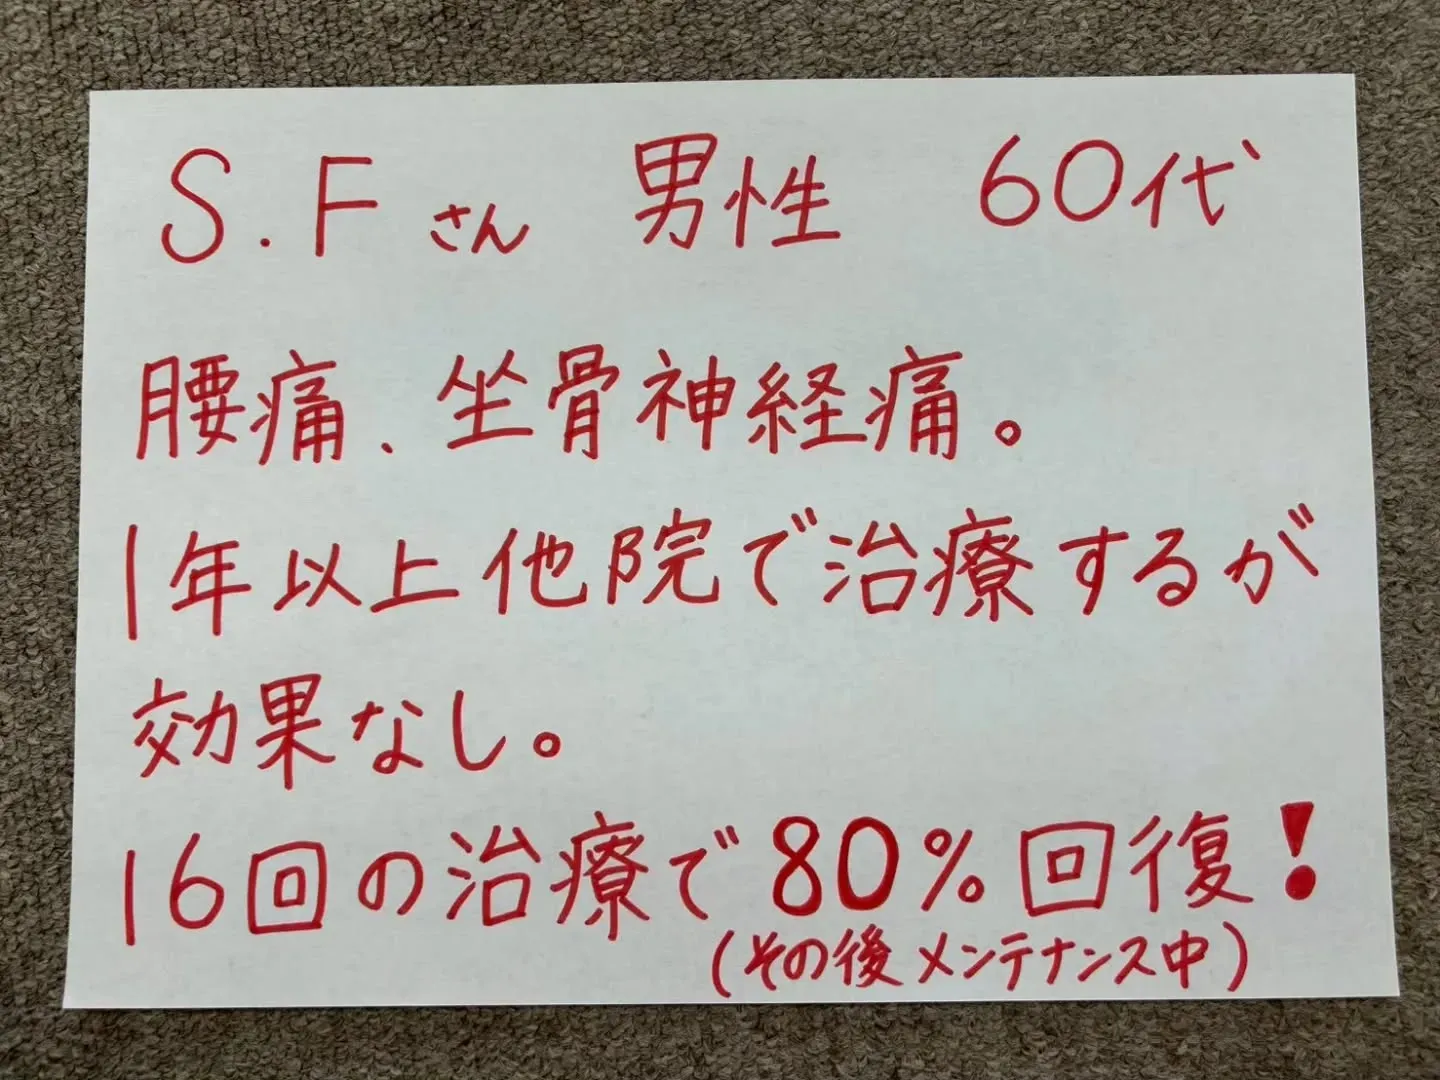 S.Fさん 男性 60代
腰痛、坐骨神経痛。
1年以上他院で治療するが
効果なし。
16回の治療で80%回復!
(その後メンテナンス中)